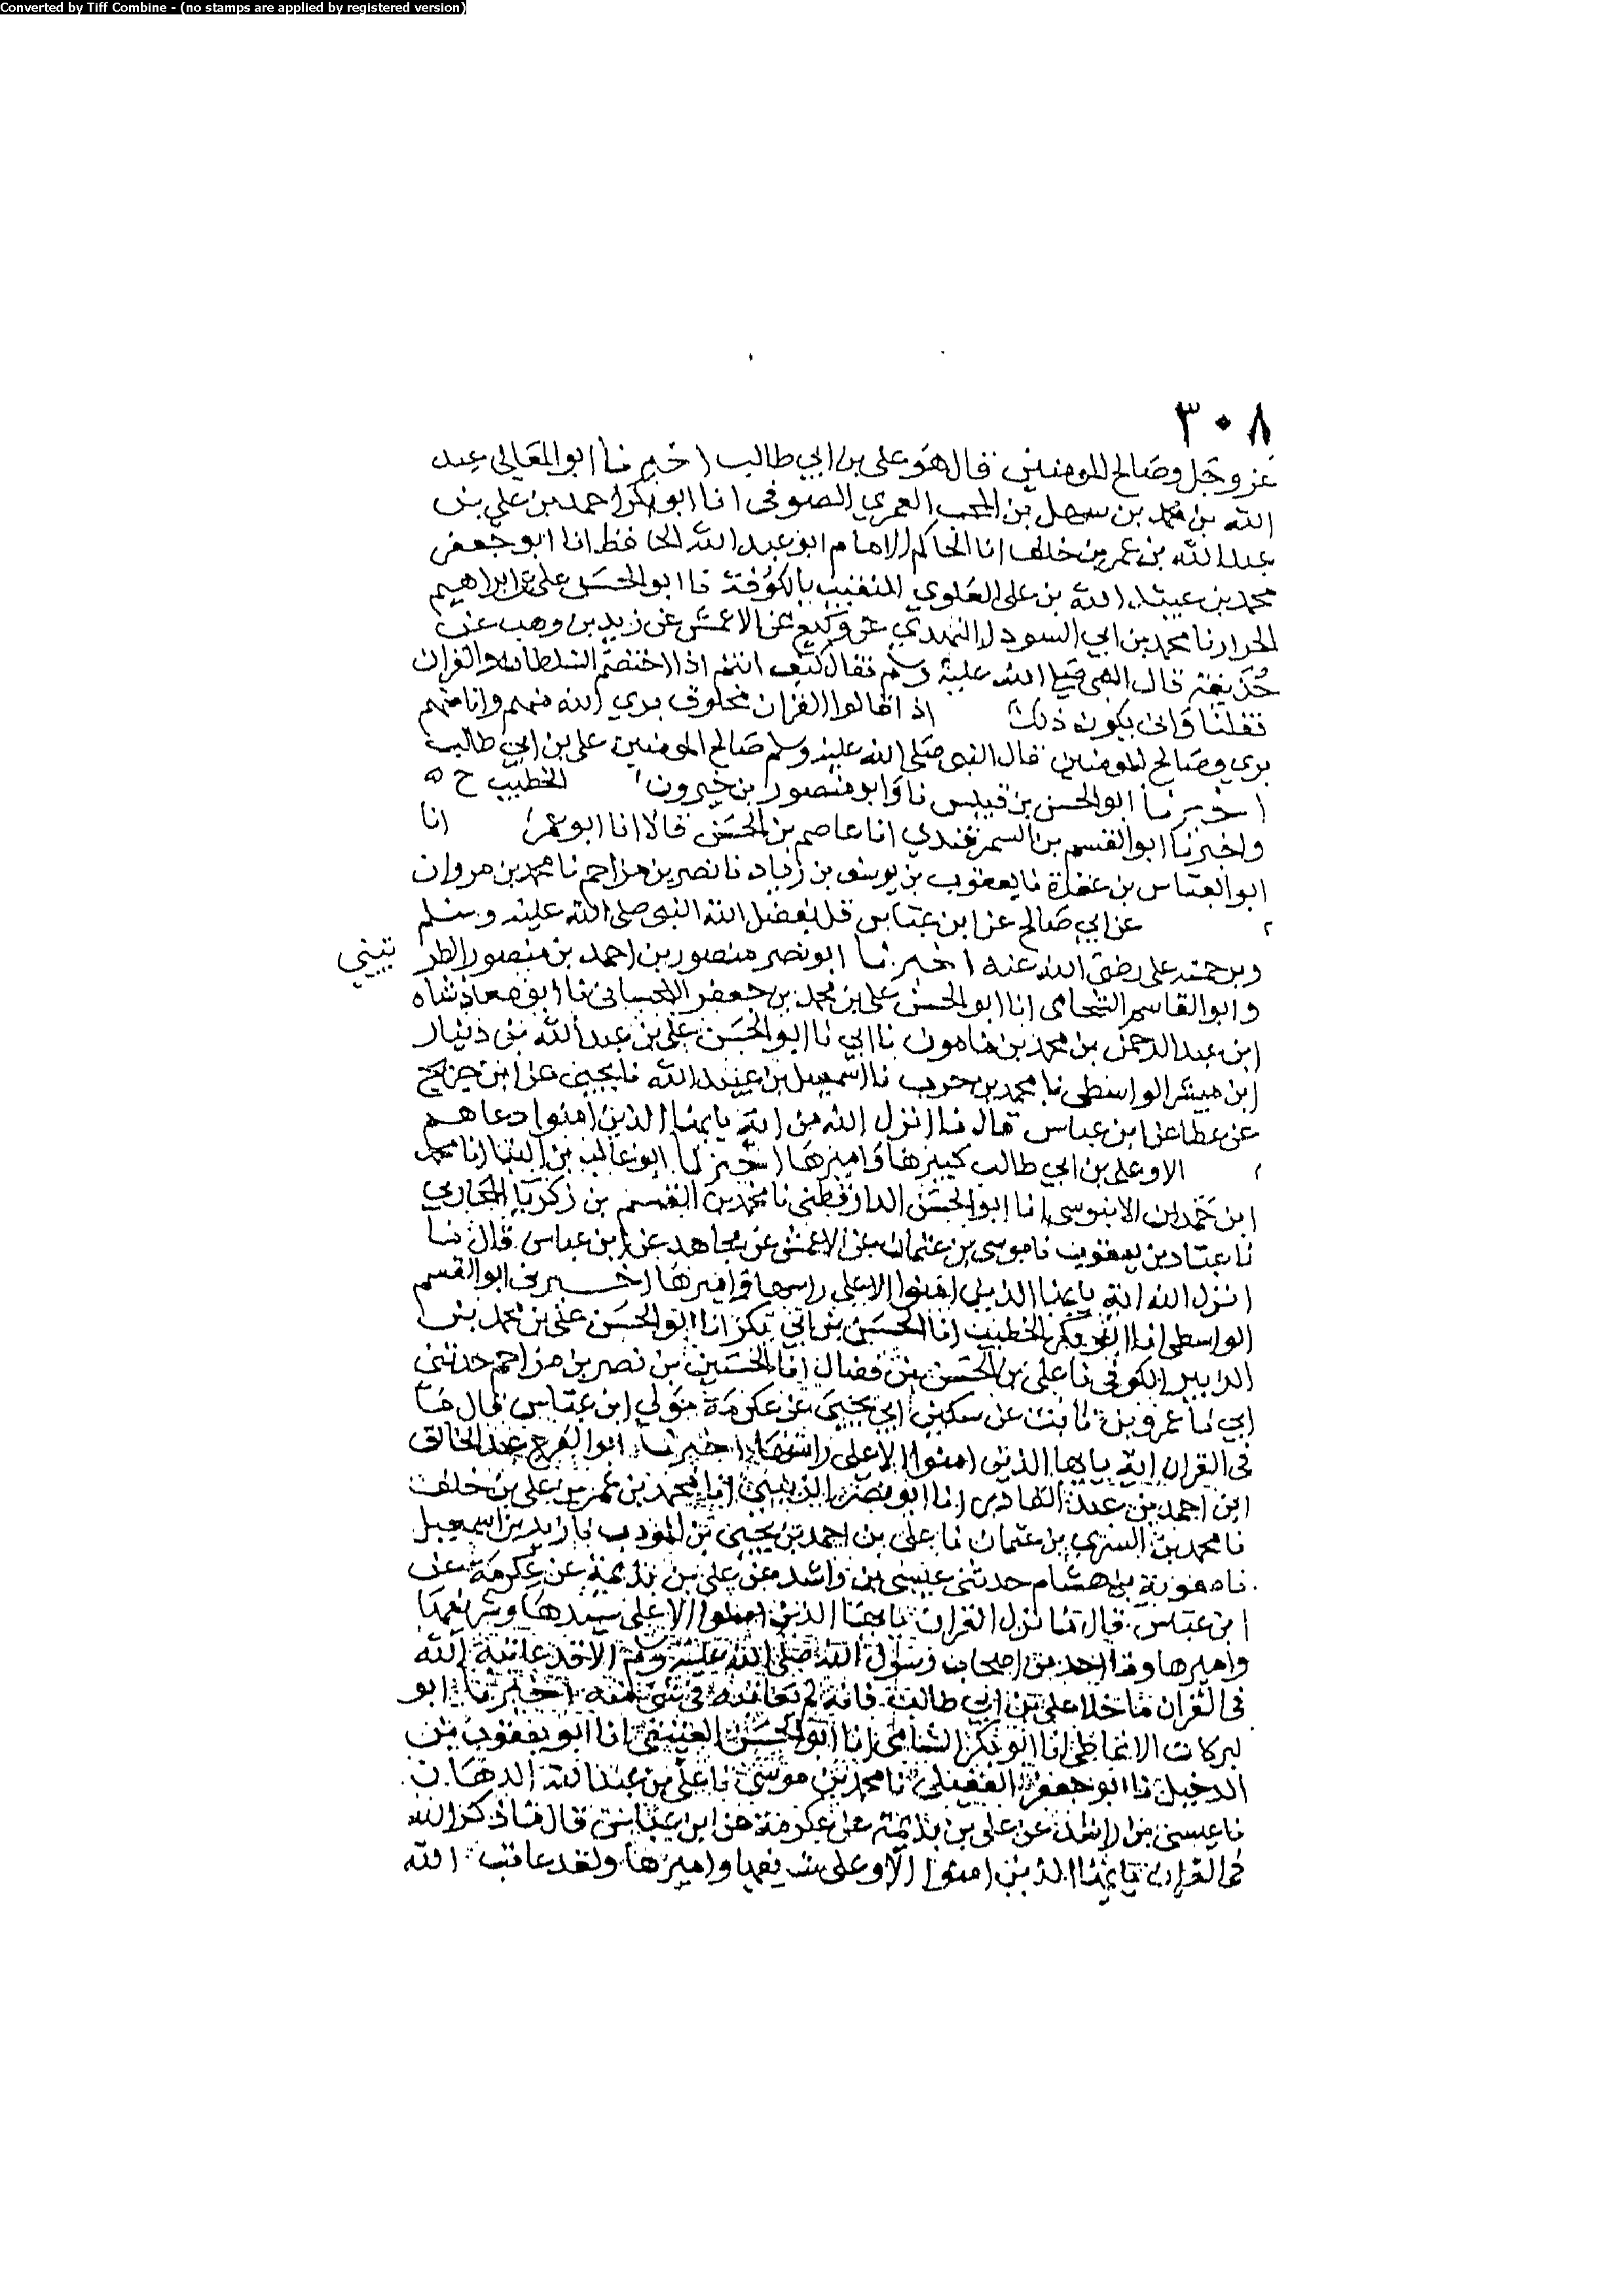 Converted by Tiff Combine - (no stamps are applied by registered version)
٣٠٨
عز وجل وصالح المومنين قال هو على بن ابي طالب اخبرنا ابو المعالي عبد
الله بن محمد بن سهل بن المحب العمري الصوفى انا ابو بكر احمد بن علي بن
عبد الله بن عمر بن خلف انا الحاكم الامام ابو عبد الله الحافظ انا ابو جعفر
محمد بن عبيد الله بن على العلوي النقيب بالكوفة نا ابو الحسن على بن ابراهيم
نا محمد بن ابي السود النهدي عن وكيع عن الاعمش عن زيد بن وهب عن
حذيفة قال النبى صلى الله عليه وسلم فقال كيف انتم اذا اختصم السلطان والقران
فقلنا وانى يكون ذلك اذا قالوا القران مخلوق بري الله منهم وانا منهم
بري وصالح المومنين قال النبى صلى الله عليه وسلم صالح المومنين على بن ابي طالب
اخبرنا ابو الحسن بن قبيس نا وابو منصور بن خيرون الخطيب ح ه
واخبرنا ابو القسم بن السمرقندي انا عاصم بن الحسن قالا انا ابو عمر انا
ابو العباس بن عقدة نا يعقوب بن يوسف بن زياد نا نصر بن مزاحم نا محمد بن مروان
عن ابي صالح عن ابن عباس قل بفضل الله النبى صلى الله عليه وسلم
وبرحمته على رضى الله عنه اخبرنا ابو نصر منصور بن احمد بن منصور الطر يثيثي
وابو القاسم الشحامى انا ابو الحسن على بن محمد بن جعفر نا ابو معاذ شاه
ابن عبد الرحمن بن محمد بن مامون نا ابي نا ابو الحسن على بن عبد الله بن دينار
ابن مبشر الواسطى نا محمد بن حرب نا اسمعيل بن عبيد الله نا يحيى عن ابن جريج
عن عطا عن ابن عباس قال ما انزل الله من اية يايها الذين امنوا دعاهم
الا وعلى بن ابي طالب كبيرها واميرها اخبرنا ابو غالب بن البنا انا محمد
ابن احمد بن الابنوسى انا ابو الحسن الدارقطنى نا محمد بن القسم بن زكريا المحاربي
نا عباد بن يعقوب نا موسى بن عثمان عن الاعمش عن مجاهد عن ابن عباس قال ما
انزل الله اية يايها الذين امنوا الا على راسها واميرها اخبرنا ابو القسم
الواسطى انا ابو بكر الخطيب انا الحسن بن ابي بكر انا ابو الحسن على بن محمد بن
الزبير الكوفى نا على بن الحسن بن فضال انا الحسين بن نصر بن مزاحم حدثنى
ابي نا عمرو بن ثابت عن سكين ابي يحيى عن عكرمة مولى ابن عباس قال ما
فى القران اية يايها الذين امنوا الا على راسها اخبرنا ابو الفرج عبد الخالق
ابن احمد بن عبد القادر انا ابو نصر الزينبي انا محمد بن عمر بن على بن خلف
نا محمد بن السري بن عثمان نا على بن احمد بن يحيى بن المودب نا زيد بن اسمعيل
نا معوية بن هشام حدثنى عيسى بن راشد عن على بن بذيمة عن عكرمة عن
ابن عباس قال ما نزل القران يايها الذين امنوا الا على سيدها وشريفها
واميرها وما احد من اصحاب رسول الله صلى الله عليه وسلم الا قد عاتبه الله
فى القران ما خلا على بن ابي طالب فانه لم يعاتبه فى شى منه اخبرنا ابو
البركات الانماطى انا ابو بكر الشامى انا ابو الحسن العتيقى انا ابو يعقوب بن
الدخيل نا ابو جعفر العقيلى نا محمد بن موسى نا على بن عبد الله الدهان
نا عيسى بن راشد عن على بن بذيمة عن عكرمة عن ابن عباس قال ما ذكر الله
فى القران يايها الذين امنوا الا وعلى شريفها واميرها ولقد عاتب الله